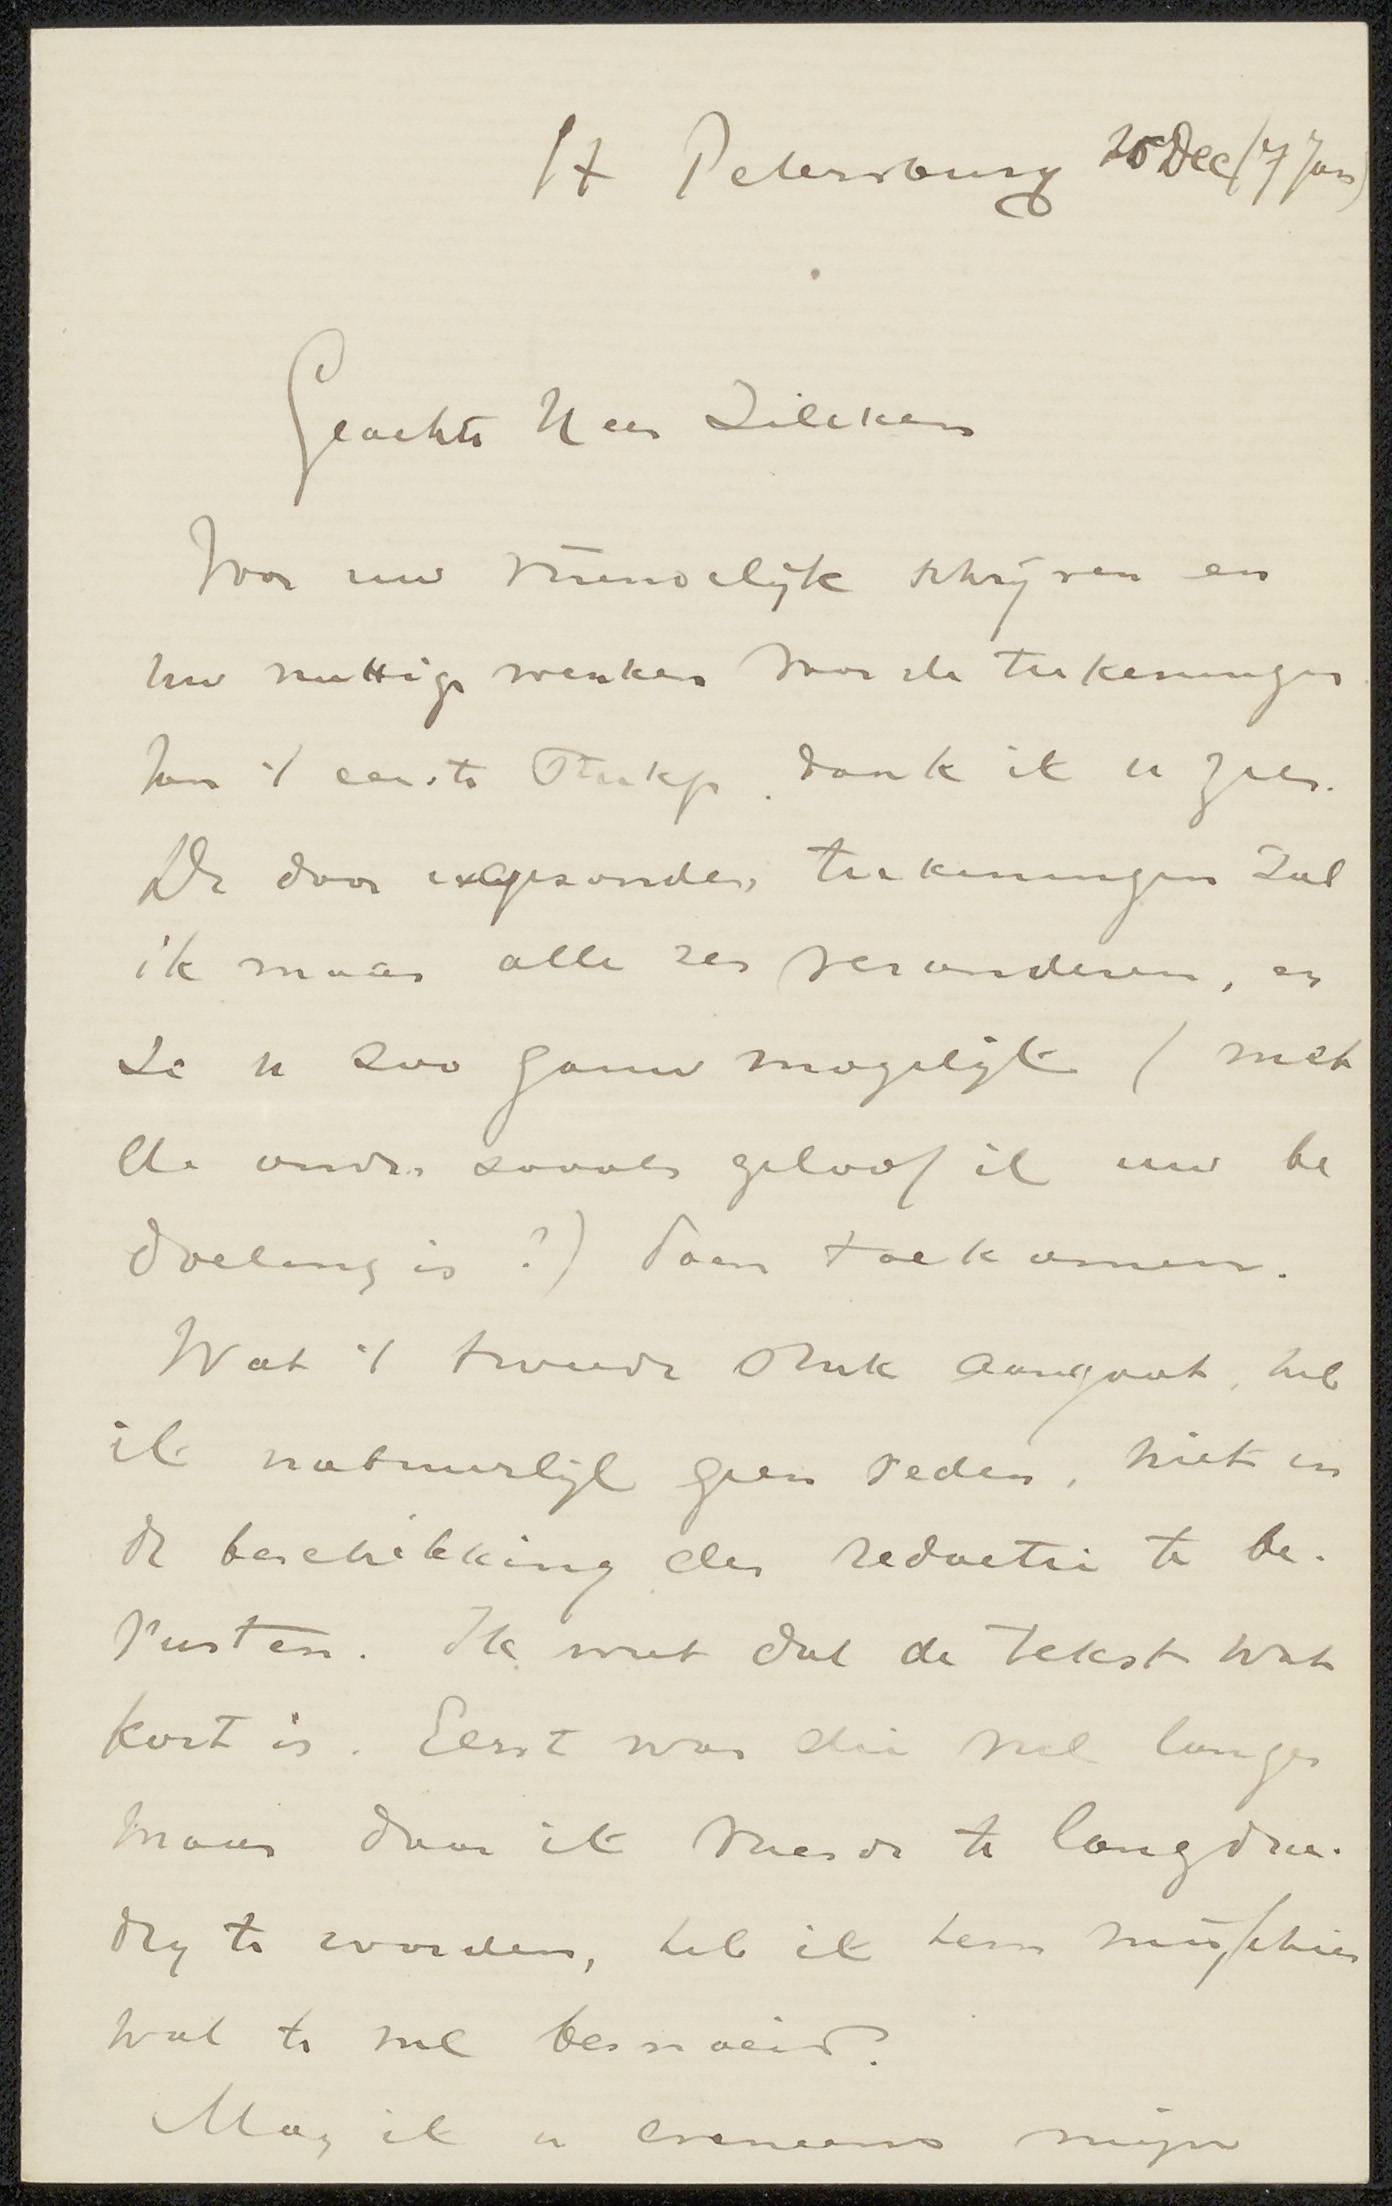 St Petersburg 25 Dec (7 Jan)
Geachte Heer Zilcken
Voor uw vriendelijk schrijven en
uw nuttige wenken voor de teekeningen
van 't eerste stukje dank ik u zeer.
De door gezonden teekeningen zal
ik maar alle zes veranderen, en
ze u zoo gauw mogelijk (met
de andre zooals geloof ik uw be
doeling is?) doen toekomen.
Wat 't tweede stuk aangaat, heb
ik natuurlijk geen reden, niet in
de beschikking der redactie te be-
rusten. Ik weet dat de tekst wat
kort is. Eerst was die veel langer
maar daar ik vreesde te langdra-
dig te worden, heb ik hem misschien
wat te veel besnoeid.
Mag ik u eveneens mijn